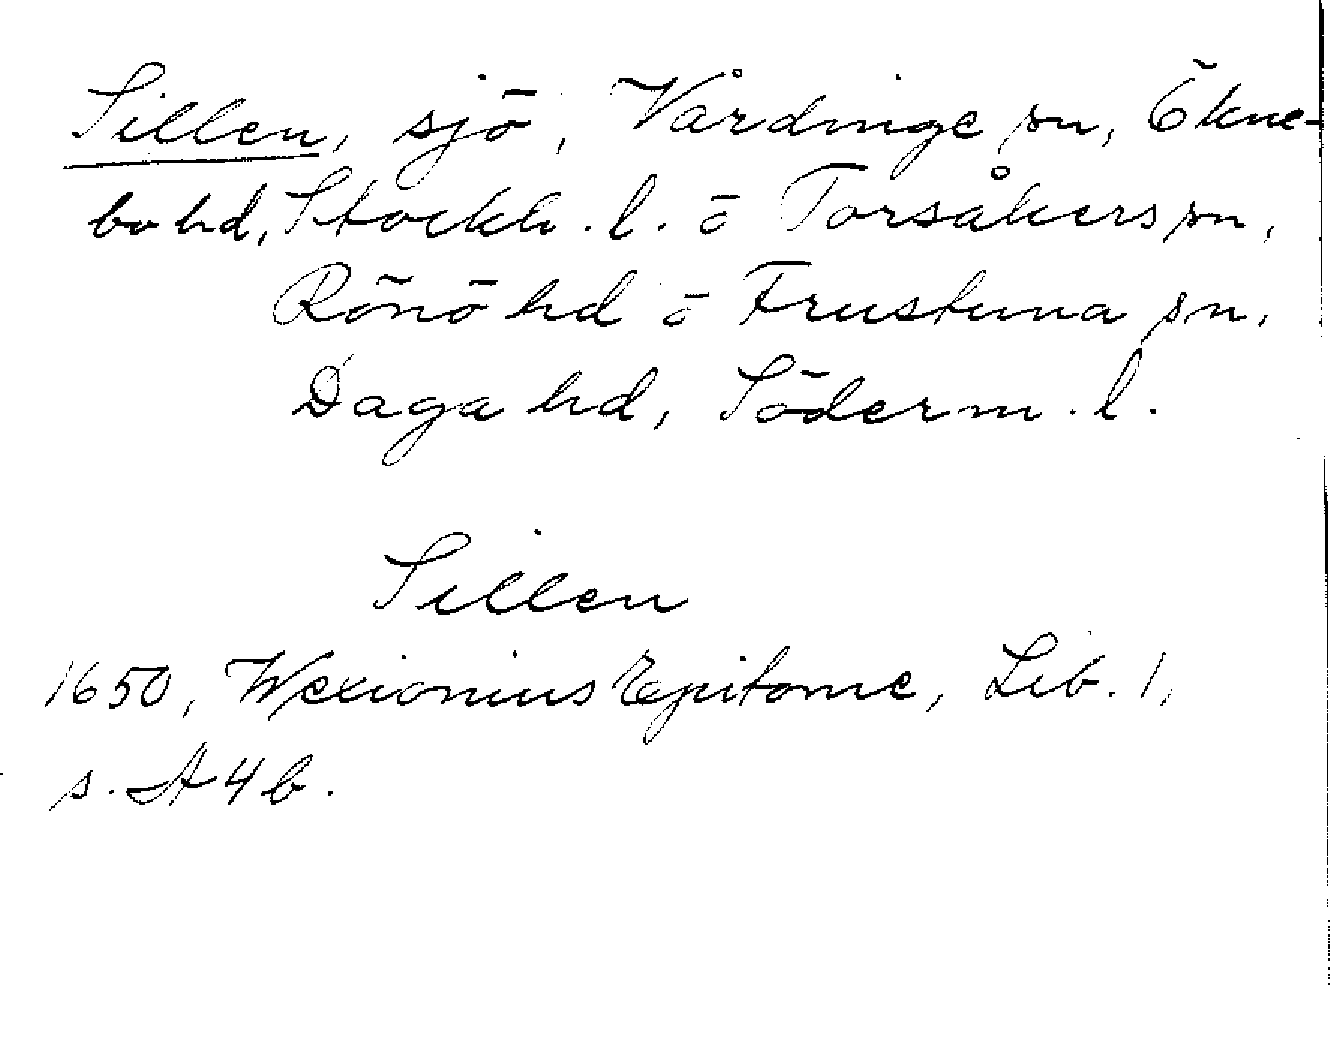 Sillen, sjö, Vårdinge sn, Ökne-
bo hd, Stockh. l. o Torsåkers sn,
Rönö hd o Frustuna sn,
Daga hd, Söderm. l.
Sillen
1650, Wexionius Epitome, Lib. 1,
s. A4b.